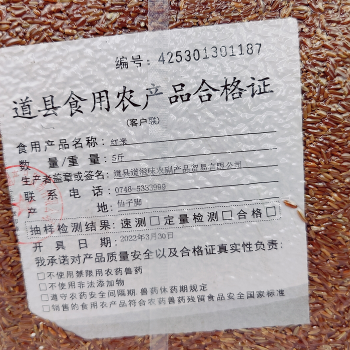 编号: 425301301187
道县食用农产品合格证
(客户联)
食用产品名称: 红米
数量/重量: 5斤
生产者盖章或签名: 道县道湘味农副产品贸易有限公司
联系电话:
产地: 仙子脚
抽样检测结果: 速测□定量检测□合格□
开具日期: 2022年3月30日
我承诺对产品质量安全以及合格证真实性负责:
□不使用禁限用农药兽药
□不使用非法添加物
□遵守农药安全间隔期、兽药休药期规定
□销售的食用农产品符合农药兽药残留食品安全国家标准